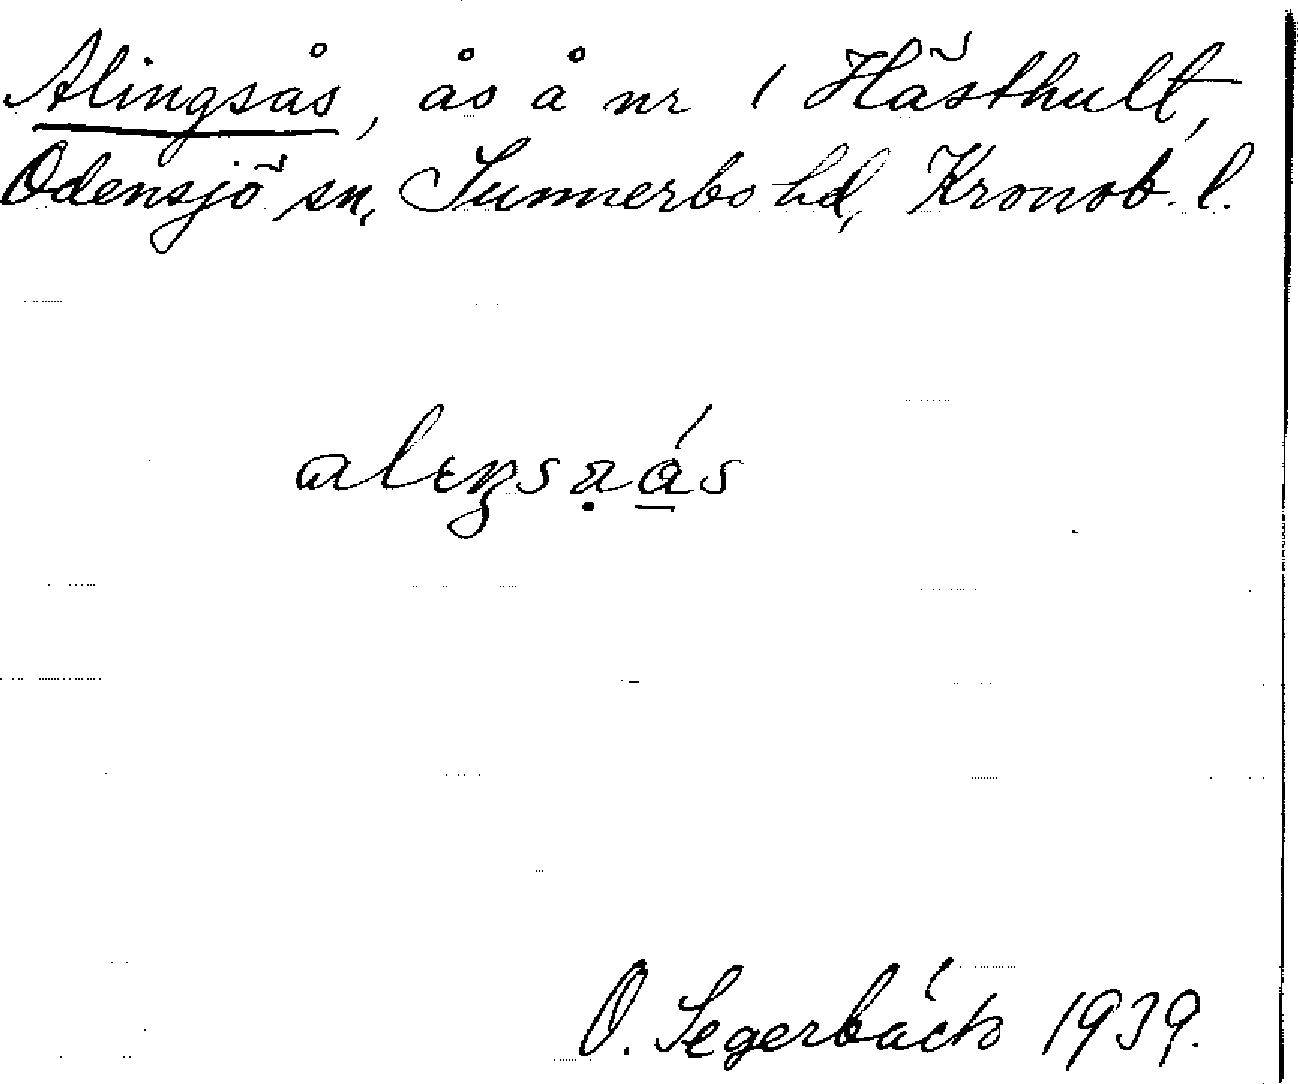 Alingsås, ås å nr 1 Hästhult,
Odensjö sn, Sunnerbo hd, Kronob. l.
O. Segerbäck 1939.